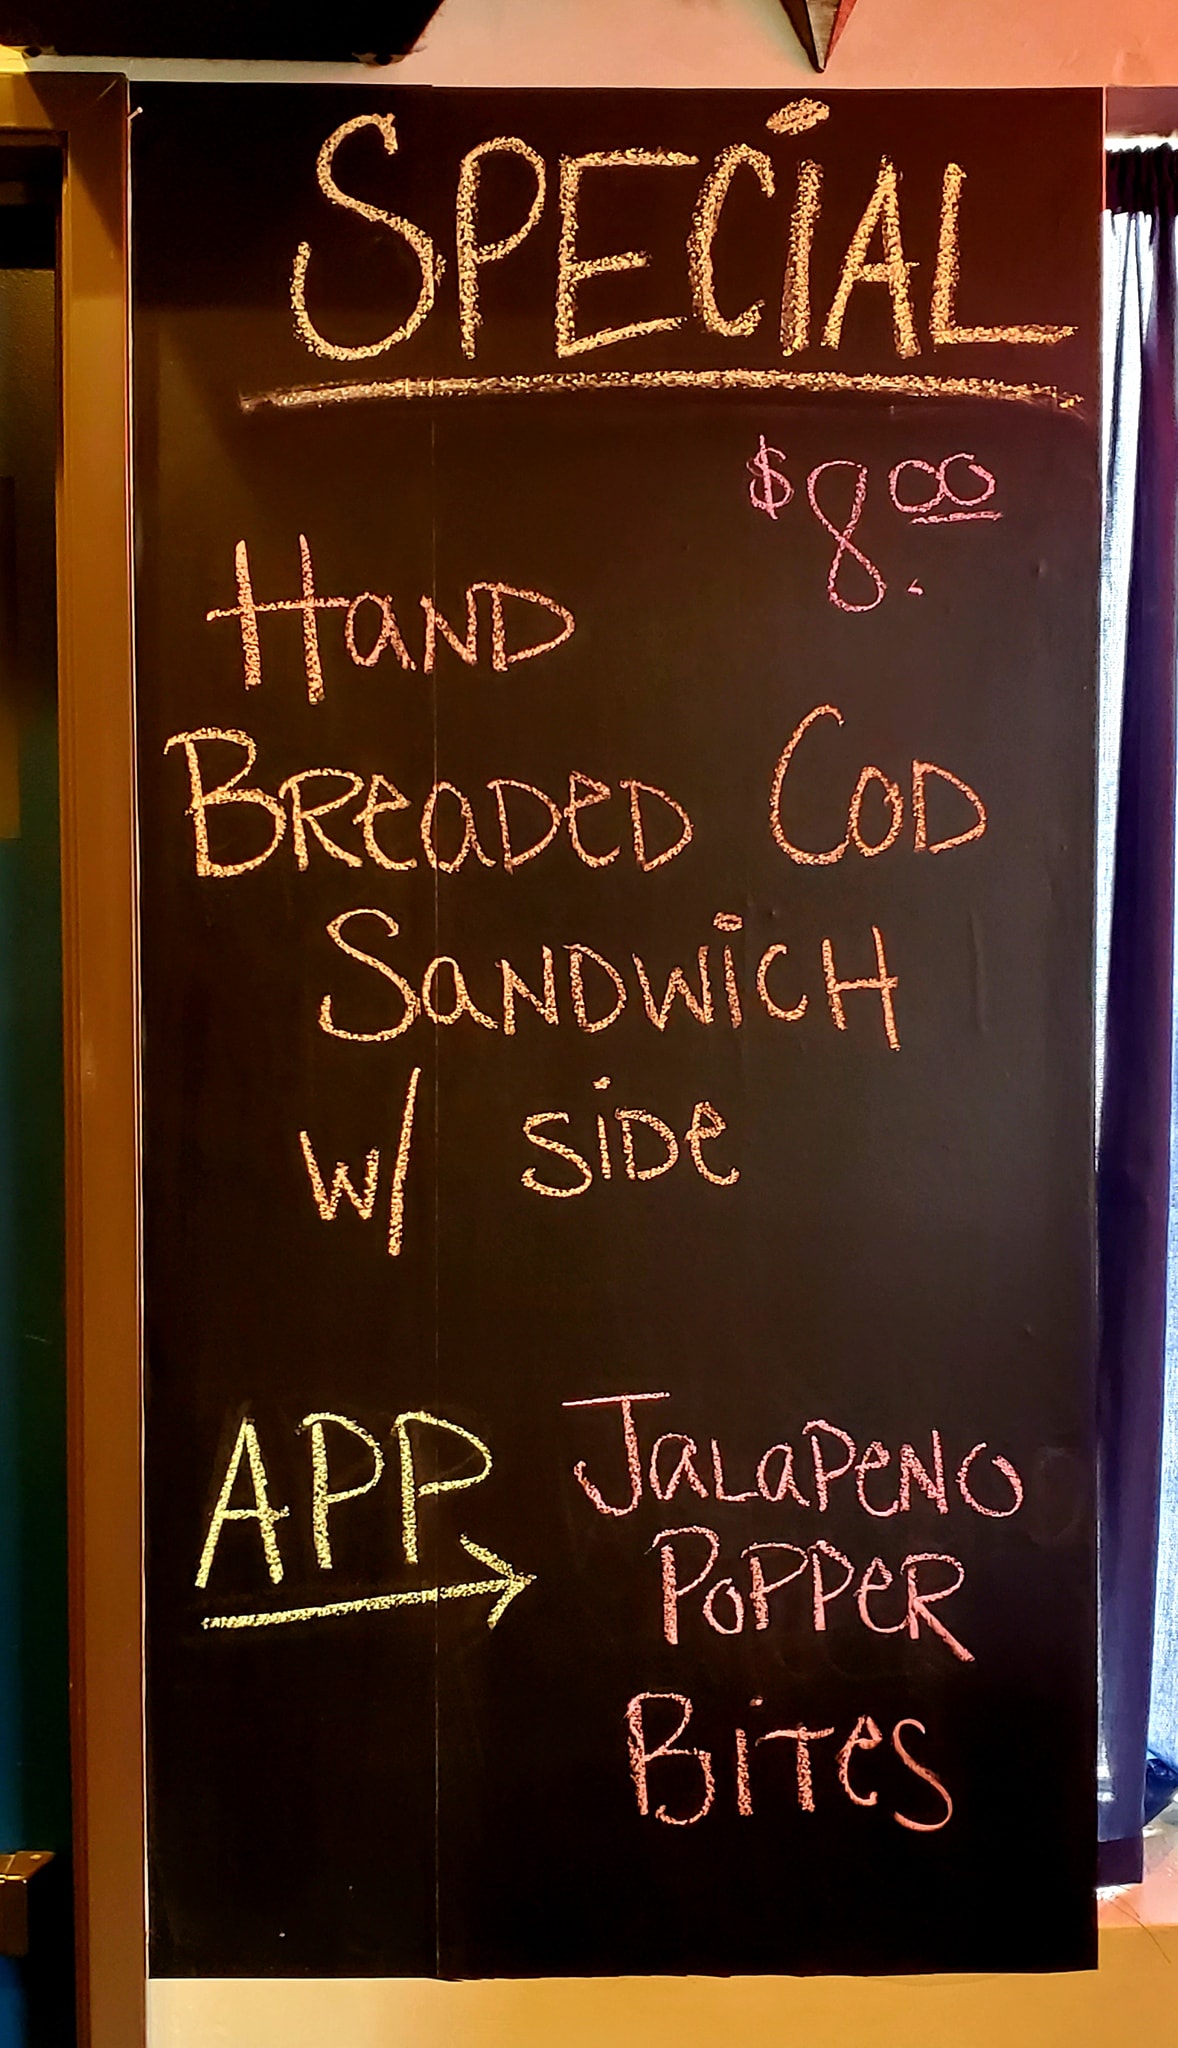 SPECiAL
$8.00
HaND
BReaDeD COD
SaNDWiCH
W/ SiDe
APP
JaLaPeNO
POPPeR
BiTeS